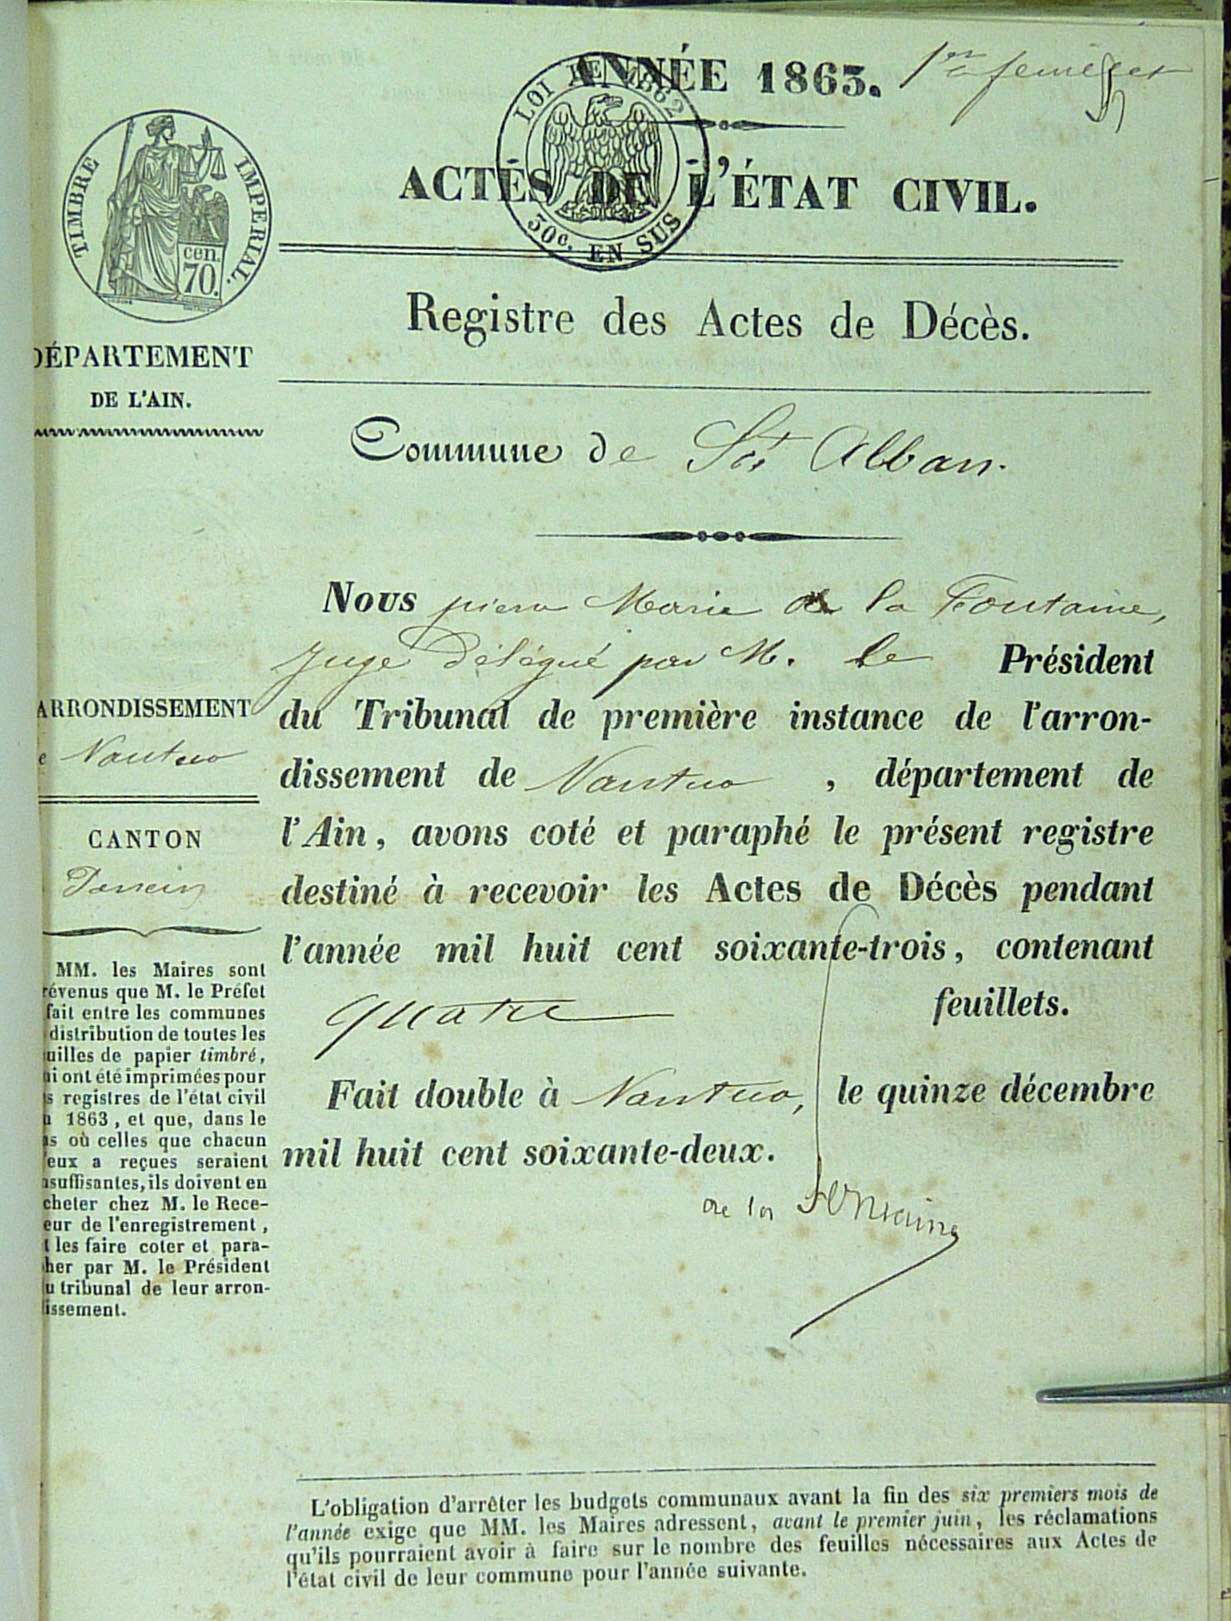 ANNÉE 1863.
1er feuillet
LOI DE 1862
30c. EN SUS
TIMBRE IMPERIAL.
cen.
70.
ACTES DE L'ÉTAT CIVIL.
Registre des Actes de Décès.
DÉPARTEMENT
DE L'AIN.
Commune de St Alban.
Nous pierre Marie de la Fontaine,
Juge délégué par M. le Président
du Tribunal de première instance de l'arron-
dissement de Nantua, département de
l'Ain, avons coté et paraphé le présent registre
destiné à recevoir les Actes de Décès pendant
l'année mil huit cent soixante-trois, contenant
quatre feuillets.
Fait double à Nantua, le quinze décembre
mil huit cent soixante-deux.
de la Fontaine
ARRONDISSEMENT
e Nantua
CANTON
Poncin
MM. les Maires sont
révenus que M. le Préfet
fait entre les communes
distribution de toutes les
uilles de papier timbré,
ui ont été imprimées pour
s registres de l'état civil
n 1863, et que, dans le
as où celles que chacun
'eux a reçues seraient
nsuffisantes, ils doivent en
cheter chez M. le Rece-
eur de l'enregistrement,
t les faire coter et para-
her par M. le Président
u tribunal de leur arron-
issement.
L'obligation d'arrêter les budgets communaux avant la fin des six premiers mois de
l'année exige que MM. les Maires adressent, avant le premier juin, les réclamations
qu'ils pourraient avoir à faire sur le nombre des feuilles nécessaires aux Actes de
l'état civil de leur commune pour l'année suivante.